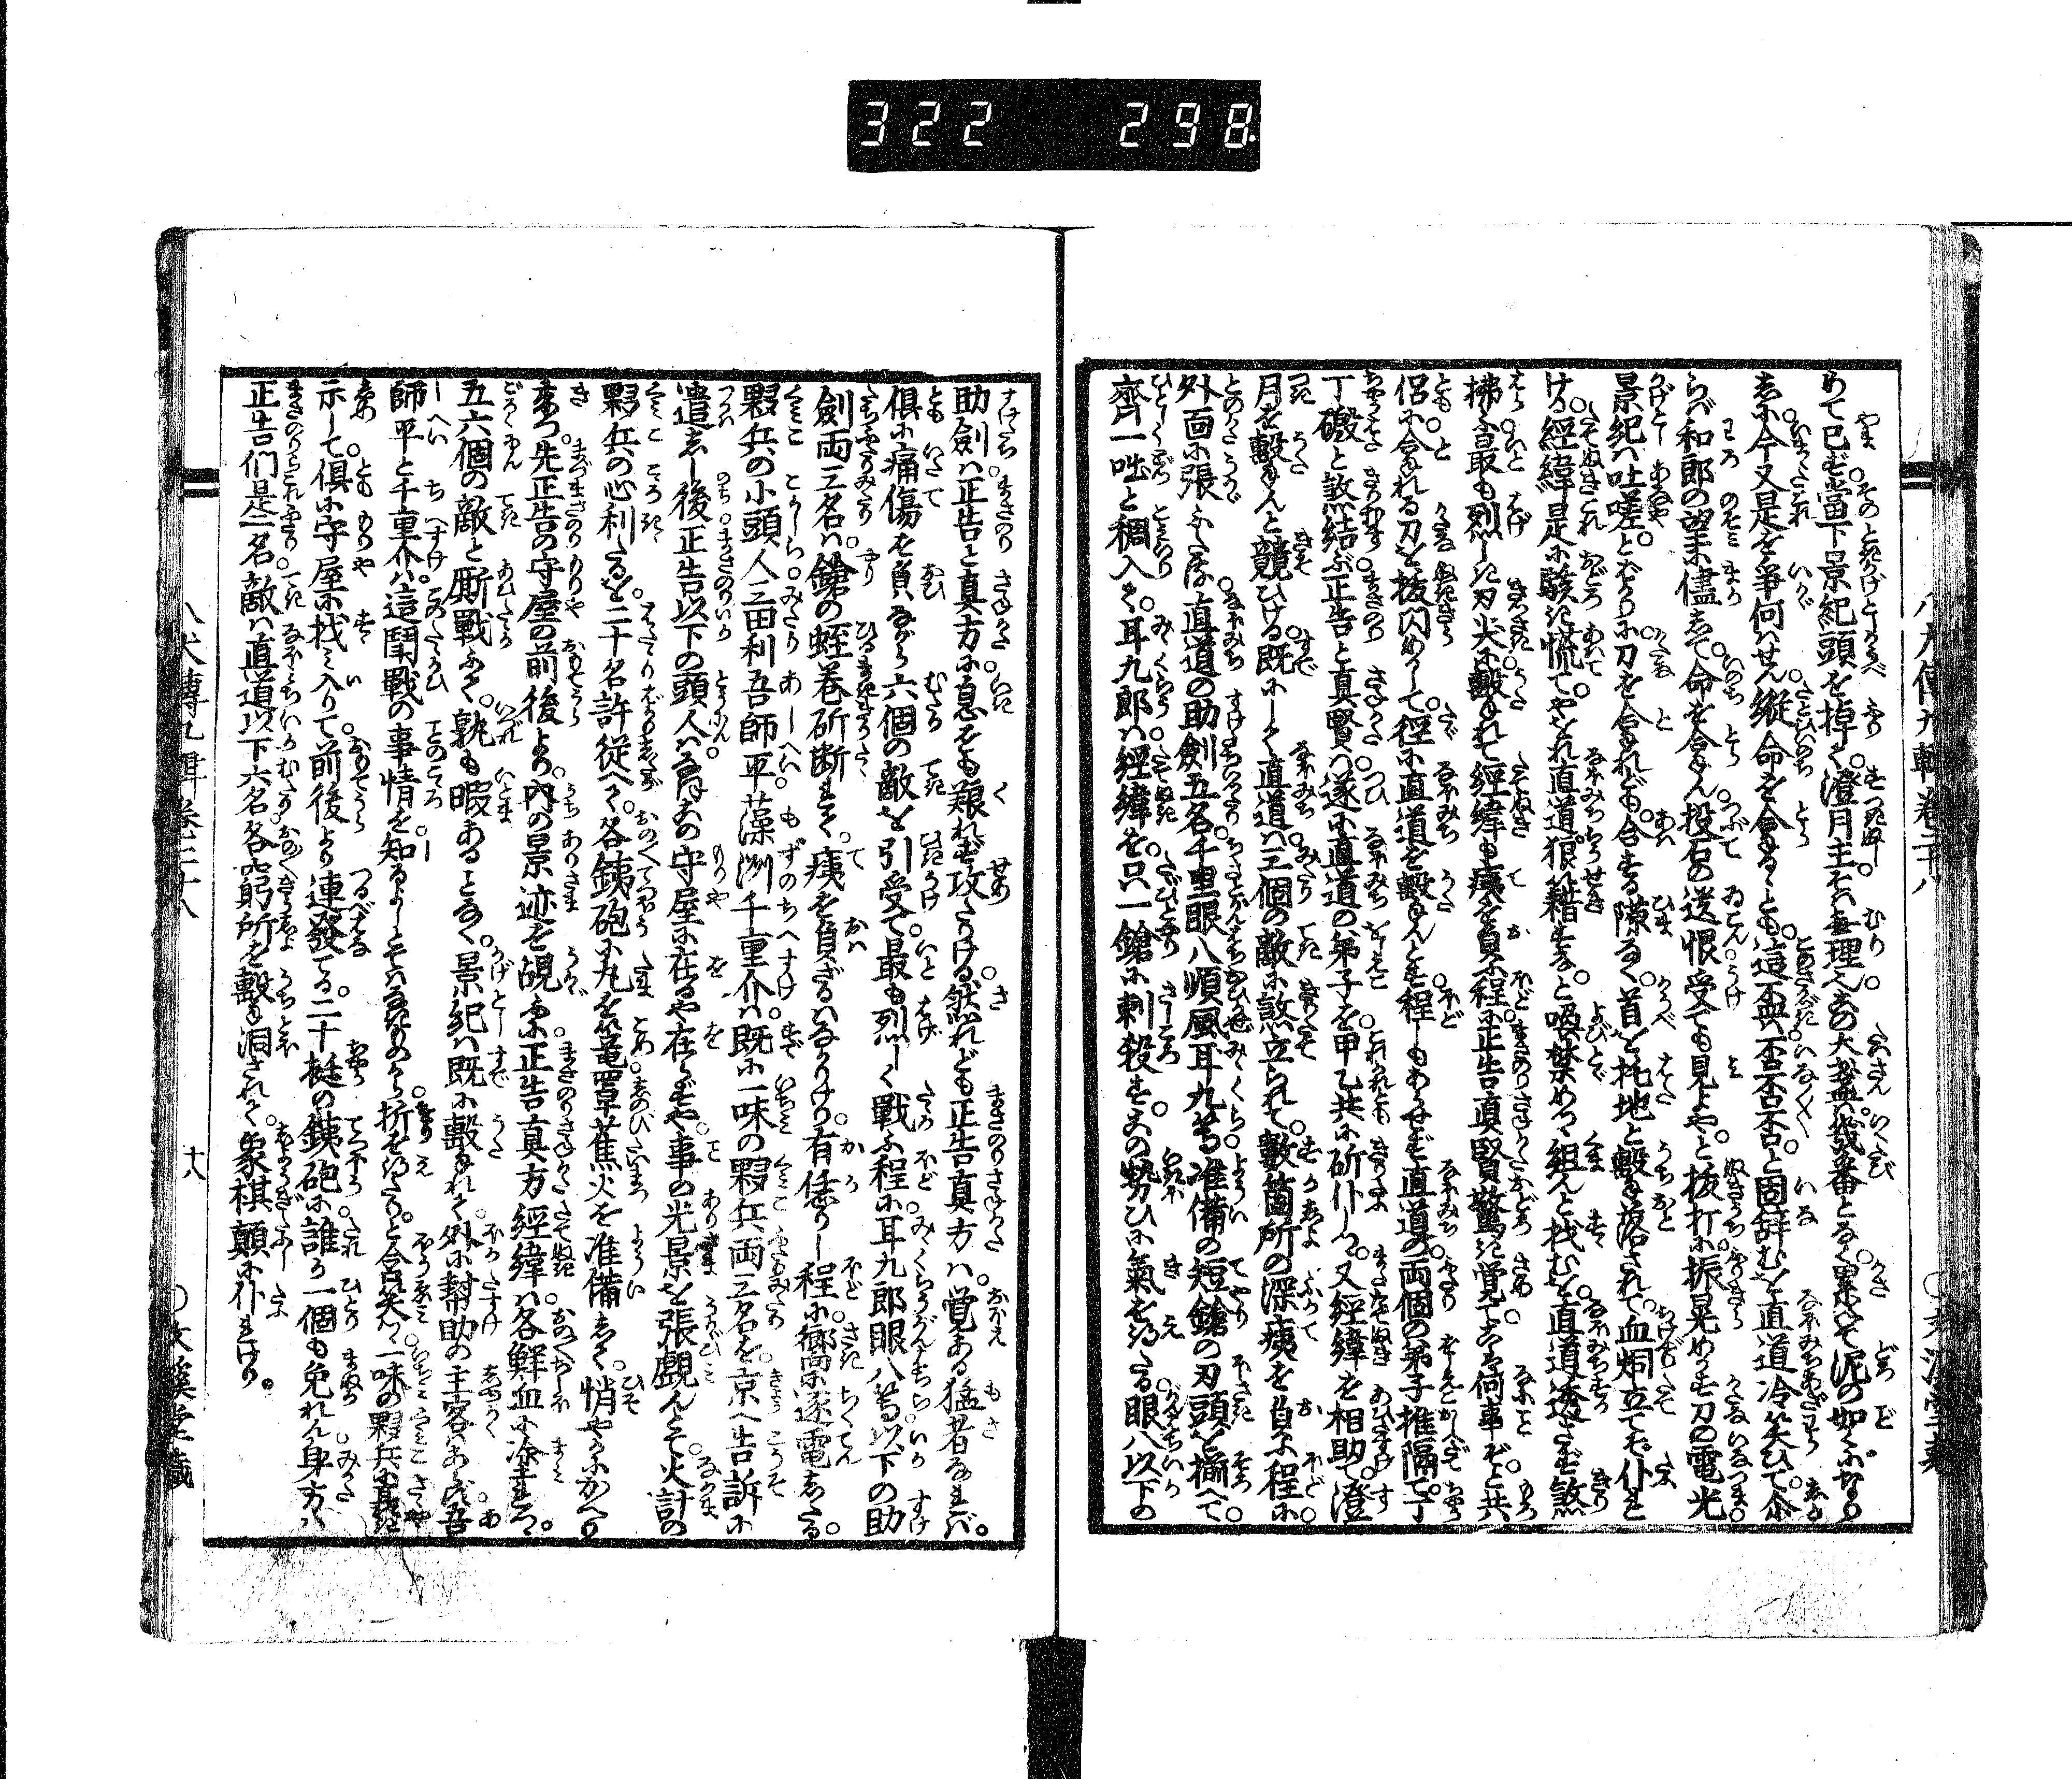 322 298
めて已ず。當下景紀頭を掉て。澄月主そは無理也。その大盞幾番となく。累ねて泥の如くになりし
しに。今又是を爭何はせん。縦命を拿るゝとも。這盃は否否否。と固辞むを直道冷笑ひて。介
らば和郎の望に儘して。命を拿ん。投石の送恨受ても見よや。と抜打に振晃めかす刀の電光
景紀は吐嗟。とばかりに。刀を拿れども。合する隙なく。首を托地と撃落されて。血烔立てぞ仆れ
ける。經緯是に駭き慌て。やをれ直道狼藉すな。と喚禁めつゝ組んと找むを。直道透さず煞
拂ふ。最も烈しき刃尖に。撃れて經緯も痍を負ふ程に。正告真賢驚き覚て。こは何事ぞ。と共
侶に。合れる刀を抜閃めかして。徑に直道を撃んとす。程しもあらせず直道の。両個の弟子推隔て。丁
丁礑と煞結ぶ。正告と真賢は。遂に直道の弟子を。甲乙共に斫仆しつ。又經緯を相助て。澄
月を撃んと競ひける。既にして直道は。三個の敵に煞立られて。數箇所の深痍を負ふ程に。
外面に張ふたる。直道の助劍五名。千里眼八順風耳九郎等。准備の短鎗の刃頭を揃へて。
齊一咄と稠入て。耳九郎は經緯を。只一鎗に刺殺す。その勢ひに氣を得たる。眼八以下の
八犬傳九輯巻三十八
助劍は。正告と真方に。息をも頫れず攻たりける。然れども正告真方は。覚ある猛者なれば。
倶に痛傷を負ながら。六個の敵を引受て。最も烈しく戰ふ程に。耳九郎眼八等。以下の助
劍両三名は。鎗の蛭巻斫断れて。痍を負ざるはなかりけり。有恁りし程に。嚮に逐電したる。
夥兵の小頭人。三田利吾師平。藻洲千重介は。既に一味の夥兵両三名を。京へ告訴に
遣したる後。正告以下の頭人は。肩その守屋に在るや在らずや。事の光景を張覷んとて。火計の
夥兵の心利たるを。二十名許従へて。各銕砲に丸を籠。罩蕉火を准備して。悄やかにかへり
來つ。先正告の守屋の前後より。内の景迹を覘ふに。正告真方經緯は。各鮮血に塗れつゝ。
五六個の敵と厮戰ふて。孰も暇あることなく。景紀は既に撃れて。外に幇助の主客あらず。吾
師平と千重介は。這鬪戰の事情を。知るよしとてはなけれども。折を得たり。と含笑て。一味の夥兵に喜
示して。倶に守屋に找み入りて。前後より連發てる。二十梃の銕砲に。誰か一個も免れん。身方は
正告們是二名。敵は直道以下六名。各窮所を撃洞されて。象棋顛に仆れけり。
八犬傳九輯巻三十八 十八 〇文溪堂藏